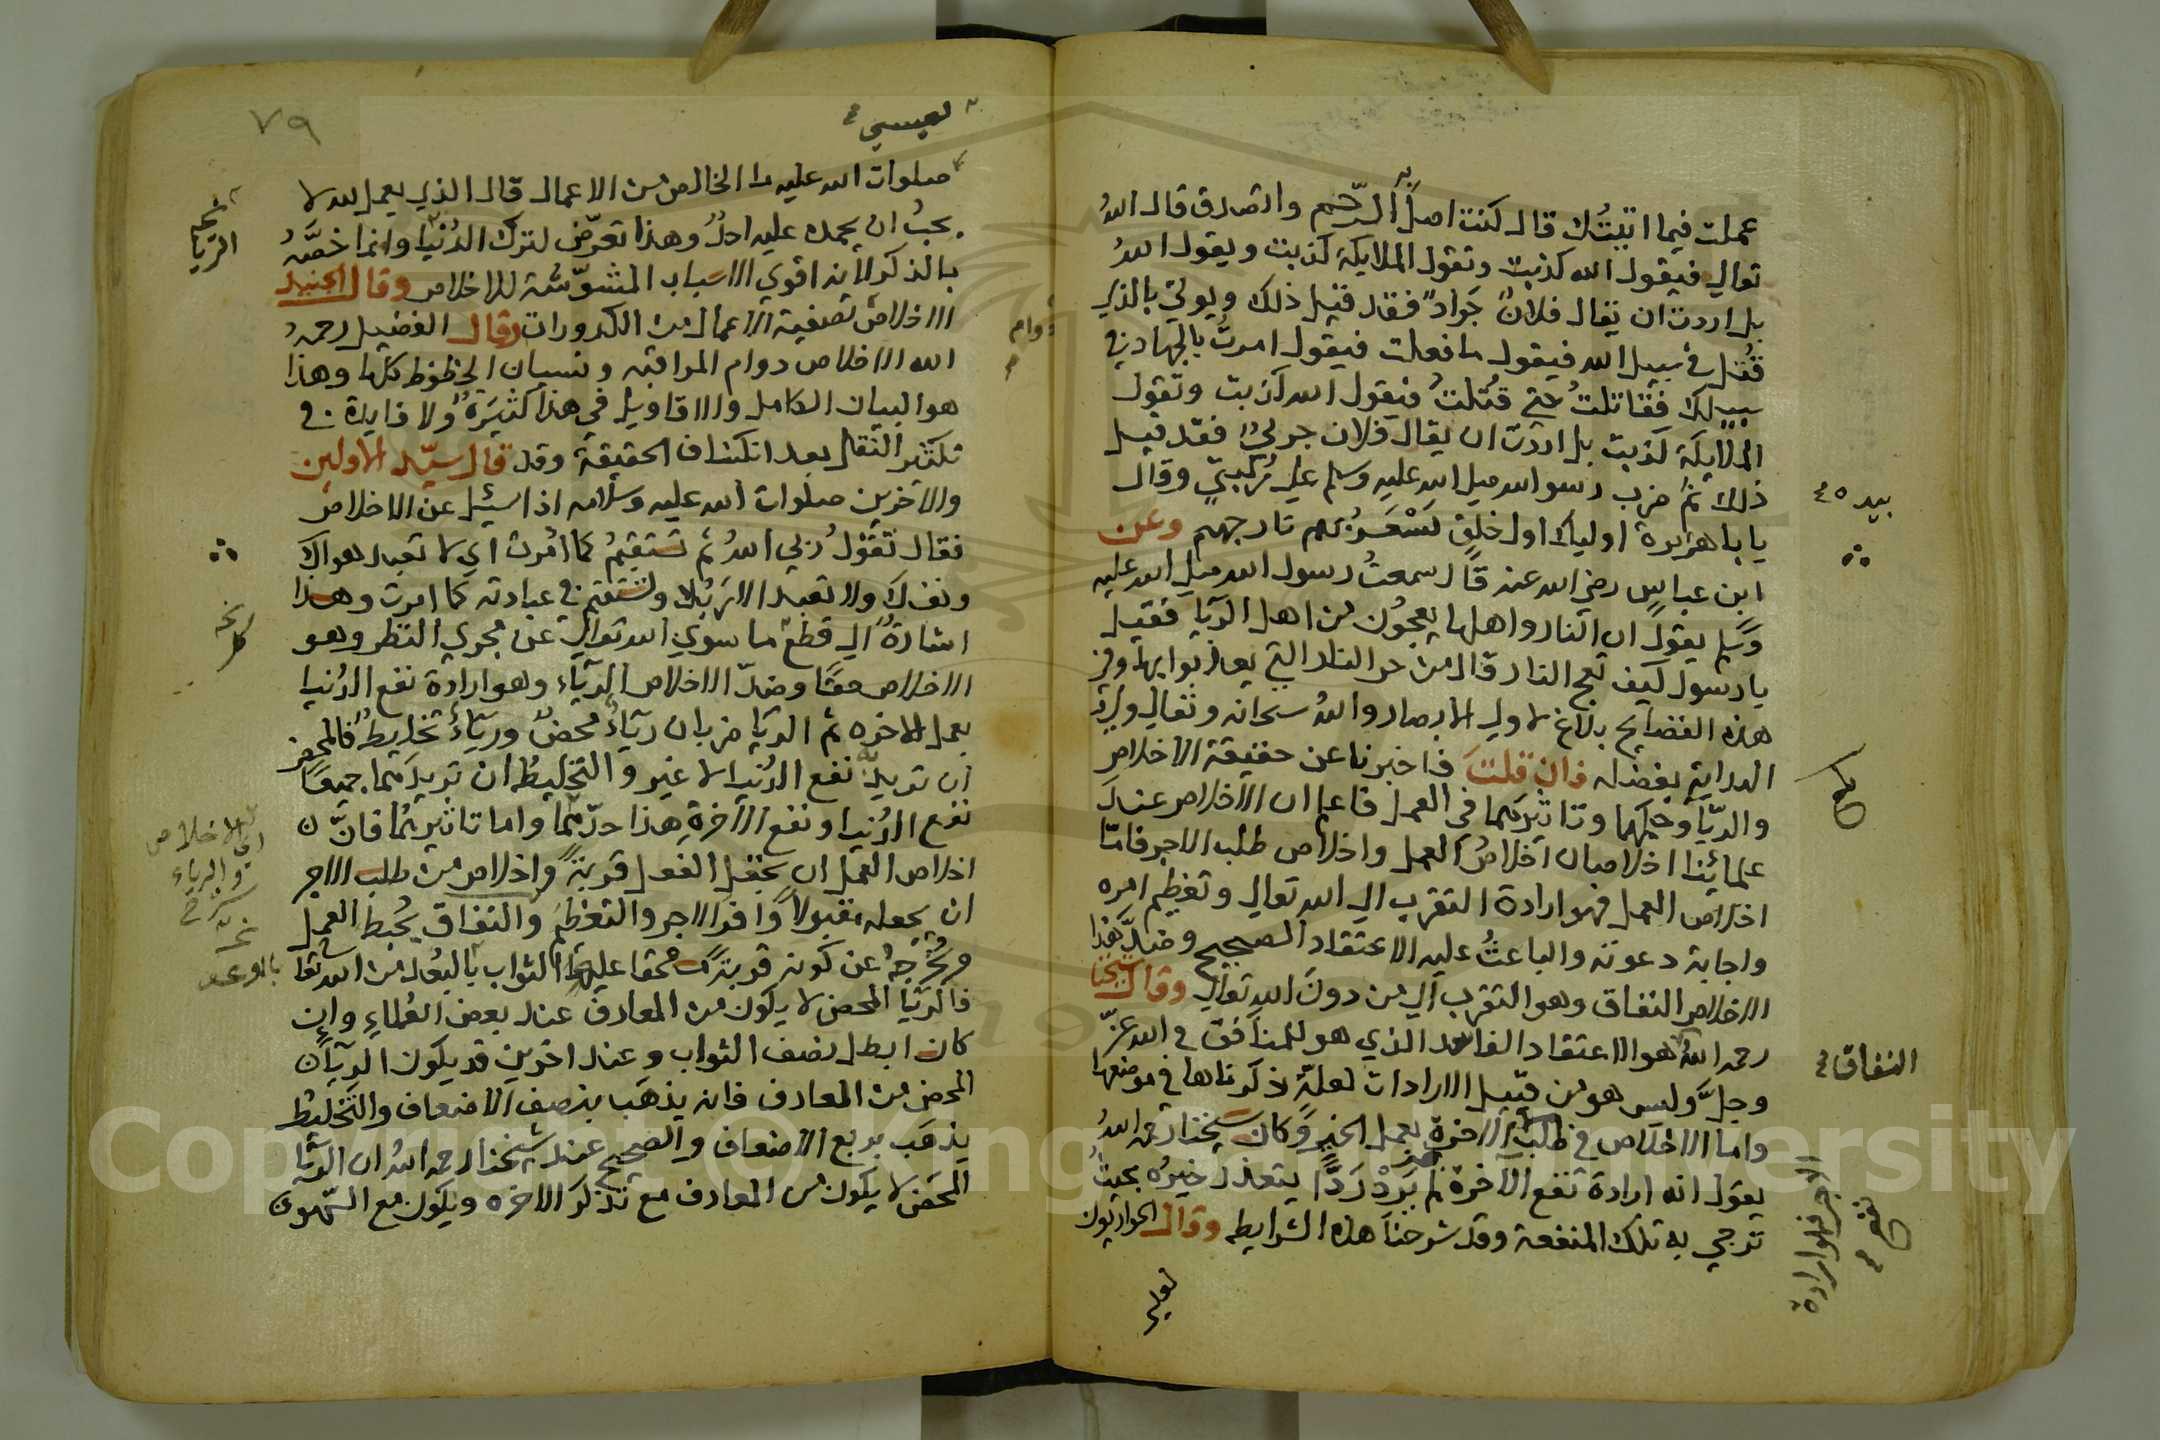 عملت فيما اتيتُك قال كنت اصل به الرّحم واتصدق قال اللهُ
تعالي فيقول الله كذبت وتقول الملايكة كذبت ويقول اللهُ
بل اردت ان يقال فلانٌ جَوادٌ فقد قيل ذلك ويوتي بالذي
قُتل في سبيل الله فيقول ما فعلت فيقول امرتُ بالجهاد في
سبيلك فقاتلتُ حتي قُتلتُ فيقول الله كذبت وتقول
الملايكة كذبت بل اردت ان يقال فلان جريٌ فقد قيل
ذلك ثم ضرب رسول الله صلي الله عليه وسلم علي ركبتي وقال
يا با هريرة اوليك اول خلق تسعر بهم نار جهنم وعن
ابن عباس رضي الله عنه قال سمعتُ رسول الله صلي الله عليه
وسلم يقول ان النار واهلها يعجون من اهل الريا فقيل
يا رسول كيف تعج النار قال من حر النار التي يعذبوا بها وفي
هذه الفضايح بلاغ لاولي الابصار واللهُ سبحانه وتعالي ولي
الهداية بفضله فان قلتَ فاخبرنا عن حقيقة الاخلاص
والريّا وحكمهما وتاثيرهما في العمل فاعلم ان الاخلاص عند
علمائنا اخلاصان اخلاصُ العمل واخلاص طلب الاجر فامّا
اخلاص العمل فهو ارادة التقرب الي الله تعالي وتعظيم امره
واجابة دعوته والباعثُ عليه الاعتقاد الصحيح وضدّ هذا
الاخلاص النفاق وهو التقرب الي من دون الله تعالي وقال شيخنا
رحمه اللهُ هو الاعتقاد الفاسد الذي هو للمنافق في الله عزّ
وجلّ وليس هو من قبيل الارادات لعلة ذكرناها في موضعها
واما الاخلاص في طلب الاخرة بعمل الخير وكان شيخنا رحمه اللهُ
يقول انه ارادة نفع الاخرة لم يَرِدْ رَدًّا يتعذر خيره بحيثُ
ترجي به تلك المنفعة وقد شرحنا هذه الشرايط وقال الحواريون
بيده
النفاق
الاجر فهو ارادة
نفع
لعيسي
٧٩
صلوات الله عليه ما الخالص من الاعمال قال الذي يعمل لله لا
يحبُ ان يحمده عليه احدٌ وهذا تعرّض لترك الدُنيا وانما خصَّهُ
بالذكر لانه اقوي الاسباب المشوّشة للاخلاص وقال الجنيد
الاخلاص تصفية الاعمال من الكدورات وقال الفضيل رحمهُ
الله الاخلاص دوام المراقبه ونسيان الحظوظ كلها وهذا
هو البيان الكامل والاقاويل في هذا كثيرةٌ ولا فايدة في
تكثير النقل بعد انكشاف الحقيقة وقد قال سيّد الاولين
والاخرين صلوات الله عليه وسلامه اذا سئيل عن الاخلاص
فقال تقول ربي اللهُ ثم تستقيمُ كما امُرت اي لا تعبد هواك
ونفسك ولا تعبد الا ربُك وتستقيم في عبادته كما امرت وهذا
اشارةٌ الي قطع ما سوي الله تعالي عن مجري النظر وهو
الاخلاص حقًا وضدّ الاخلاص الريّاء وهو ارادة نفع الدُنيا
بعمل الاخره ثم الريا ضربان ريّاءٌ محضٌ وريّاءُ تخليطٍ فالمحض
ان تريد به نفع الدُنيا لا غير والتخليطُ ان تريدهما جميعًا
نفع الدُنيا ونفع الآخرة هذا حدّهُما واما تاثيرُهما فانَّ
اخلاص العمل ان يجعل الفعل قربةً واخلاص من طلب الاجر
ان يجعله مقبولاً وافر الاجر والتعظيم والنفاق يُحبط العمل
ويُخرجهُ عن كونه قربة مستحقا عليها الثواب بالبُعد من الله تعا
فالريّا المحض لا يكون من العارف عند بعض العُلماءِ وان
كان ابطل نصف الثواب وعند اخرين قد يكون الريّا
المحض من العارف فانه يذهب بنصف الاضعاف والتخليط
يذهَب بربع الاضعاف والصحيح عند شيخنا رحمه اللهُ ان الريّا
المحض لا يكون من العارف مع تذكر الاخره ويكون مع السّهو
دوام
الاخلاص
والرياء